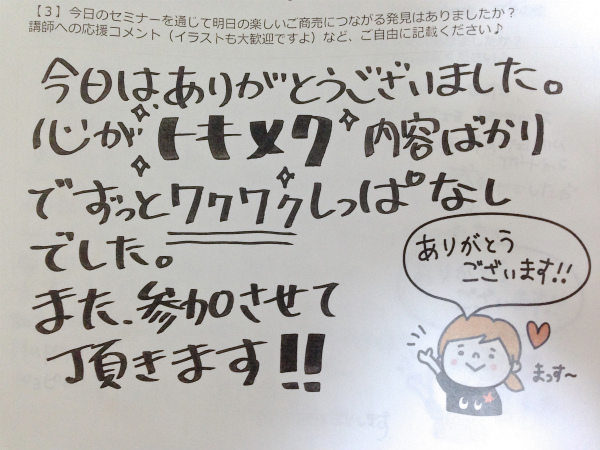 【3】今日のセミナーを通じて明日の楽しいご商売につながる発見はありましたか?
講師への応援コメント(イラストも大歓迎ですよ)など、ご自由に記載ください♪
今日は、ありがとうございました。
心がトキメク内容ばかり
でずっとワクワクしっぱなし
でした。
また、参加させて
頂きます!!
ありがとう
ございます!!
まっす〜